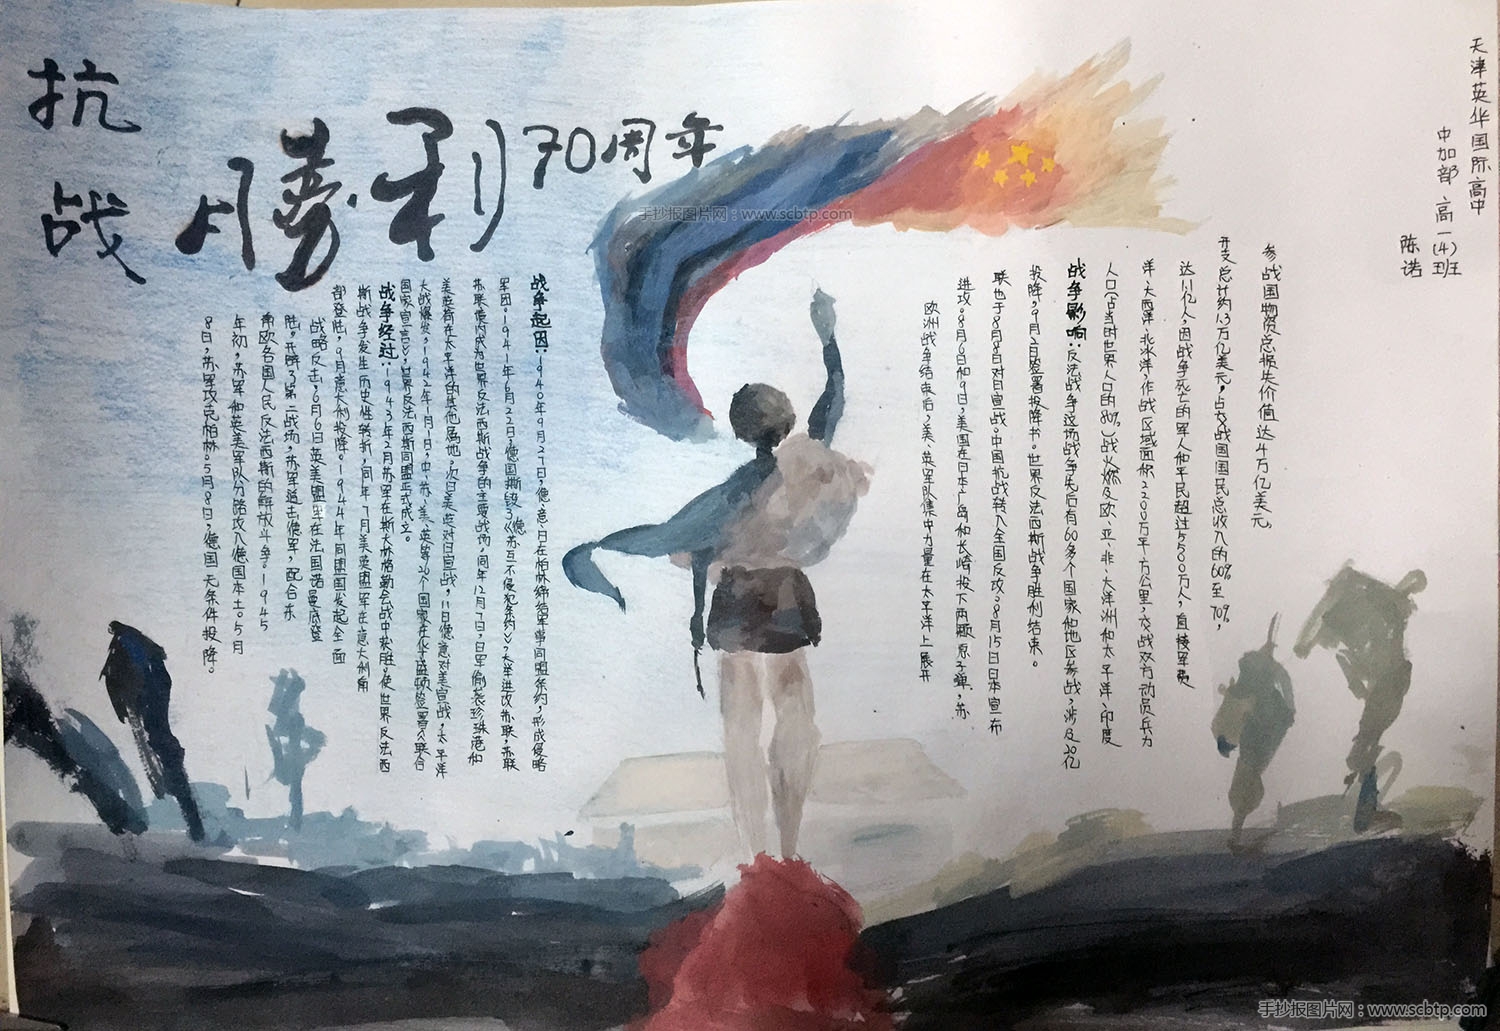 抗战
勝利70周年
天津英华国际高中
中加部 高一(4)班
陈诺
战争起因：1940年9月27日，德、意、日在柏林缔结军事同盟条约，形成侵略
军团。1941年6月22日，德国撕毁了《德苏互不侵犯条约》，大举进攻苏联，苏联
苏联境内成为世界反法西斯战争的主要战场，同年12月7日，日军偷袭珍珠港和
美英荷在太平洋的其他属地。次日美英对日宣战，11日德意对美宣战，太平洋
大战爆发，1942年1月1日，中、苏、美、英等26个国家在华盛顿签署《联合
国家宣言》，世界反法西斯同盟正式成立。
战争经过：1943年2月苏军在斯大林格勒会战中获胜。使世界反法西
斯战争发生历史性转折，同年7月美英盟军在意大利南
部登陆，9月意大利投降。1944年同盟国发起全面
战略反击，6月6日英美盟军在法国诺曼底登
陆，开辟了第二战场，苏军追击德军，配合东
南欧各国人民反法西斯的解放斗争。1945
年初，苏军和英美军队分路攻入德国本土。5月
8日，苏军攻克柏林。5月8日，德国无条件投降。
欧洲战争结束后，美、英军队集中力量在太平洋上展开
进攻。8月6日和9日，美国在日本广岛和长崎投下两颗原子弹，苏
联也于8月8日对日宣战。中国抗战转入全国反攻。8月15日日本宣布
投降，9月2日签署投降书。世界反法西斯战争胜利结束。
战争影响：反法战争这场战争先后有60多个国家和地区参战，涉及20亿
人口(占当时世界人口的80%)战火燃及欧、亚、非、大洋洲和太平洋、印度
洋、大西洋、北冰洋，作战区域面积2200万平方公里，交战双方动员兵力
达1.1亿人，因战争死亡的军人和平民超过5500万人，直接军费
开支总计约1.3万亿美元，占交战国国民总收入的60%至70%，
参战国物资总损失价值达4万亿美元。
手抄报图片网：www.scbtp.com
手抄报图片网：www.scbtp.com